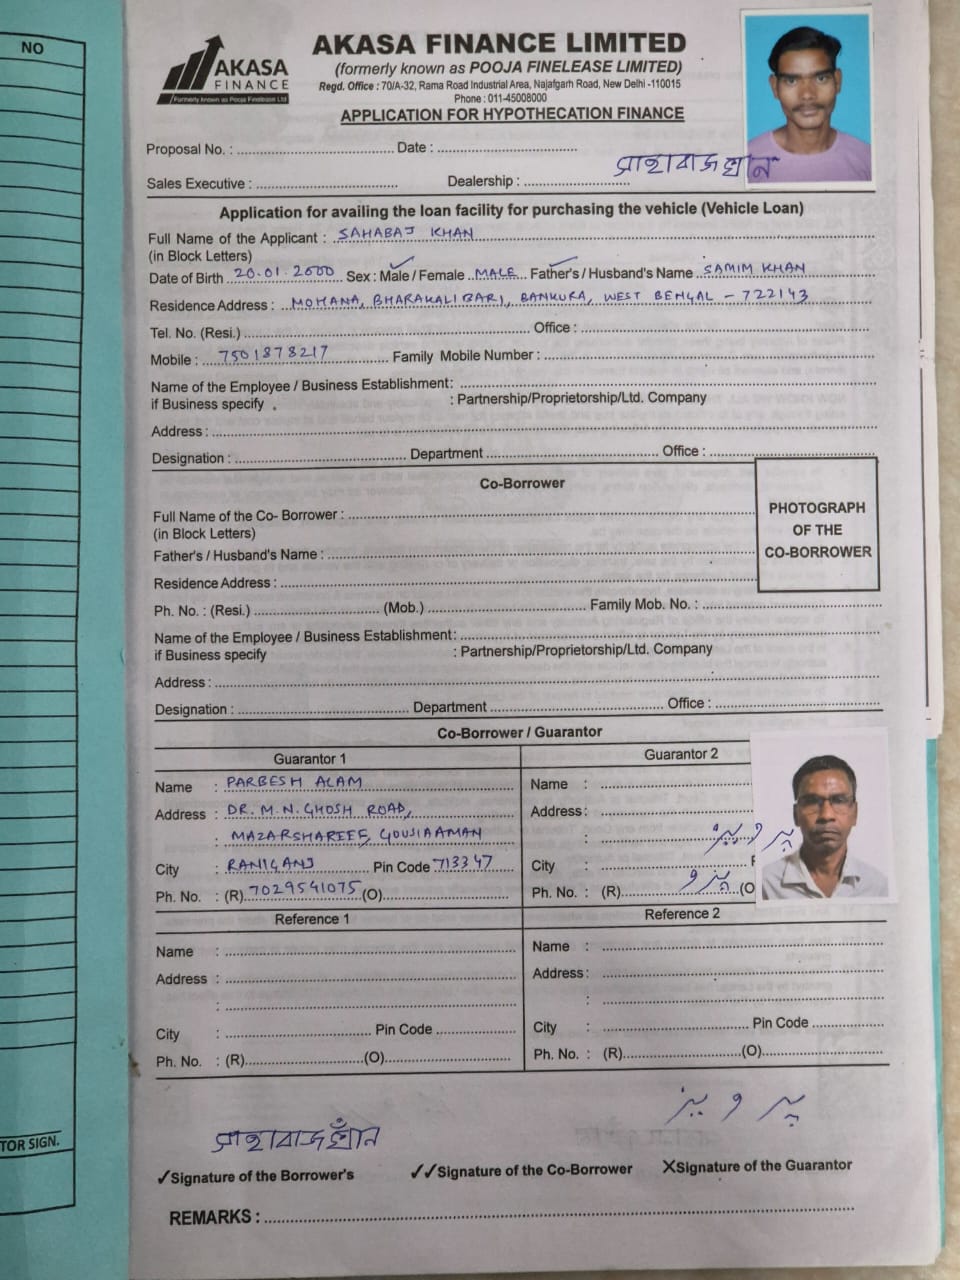 NO
AKASA
FINANCE
Formerly known as Pooja Finelease Ltd
AKASA FINANCE LIMITED
(formerly known as POOJA FINELEASE LIMITED)
Regd. Office : 70/A-32, Rama Road Industrial Area, Najafgarh Road, New Delhi -110015
Phone : 011-45008000
APPLICATION FOR HYPOTHECATION FINANCE
Proposal No. : Date :
সাহাবাজ খান
Sales Executive : Dealership :
Application for availing the loan facility for purchasing the vehicle (Vehicle Loan)
Full Name of the Applicant : SAHABAJ KHAN
(in Block Letters)
Date of Birth 20.01.2000 Sex : Male / Female MALE Father's / Husband's Name SAMIM KHAN
Residence Address : MOHANA, BHARAKALIBARI, BANKURA, WEST BENGAL - 722143
Tel. No. (Resi.) Office :
Mobile : 7501878217 Family Mobile Number :
Name of the Employee / Business Establishment :
if Business specify : Partnership/Proprietorship/Ltd. Company
Address :
Designation : Department Office :
Co-Borrower
PHOTOGRAPH
OF THE
CO-BORROWER
Full Name of the Co- Borrower :
(in Block Letters)
Father's / Husband's Name :
Residence Address :
Ph. No. : (Resi.) (Mob.) Family Mob. No. :
Name of the Employee / Business Establishment :
if Business specify : Partnership/Proprietorship/Ltd. Company
Address :
Designation : Department Office :
Co-Borrower / Guarantor
Guarantor 1
Name : PARBESH ALAM
Address : DR. M. N. GHOSH ROAD,
: MAZARSHARIEF, GOUSIAAMAN
City : RANIGANJ Pin Code 713347
Ph. No. : (R) 7029541075 (O)
Guarantor 2
Name :
Address :
:
پرویز
City :
Ph. No. : (R) (O
Reference 1
Name :
Address :
:
City : Pin Code
Ph. No. : (R) (O)
Reference 2
Name :
Address :
:
City : Pin Code
Ph. No. : (R) (O)
সাহাবাজ খাঁন
پرویز
TOR SIGN.
✓Signature of the Borrower's ✓✓Signature of the Co-Borrower XSignature of the Guarantor
REMARKS :